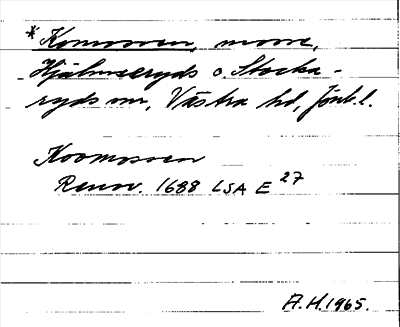 *Komossen, mosse,
Hjälmseryds o. Stocka-
ryds snr, Västra hd, Jönk. l.
Koomossen
Renov. 1688 LSA E 27
A.H. 1965.